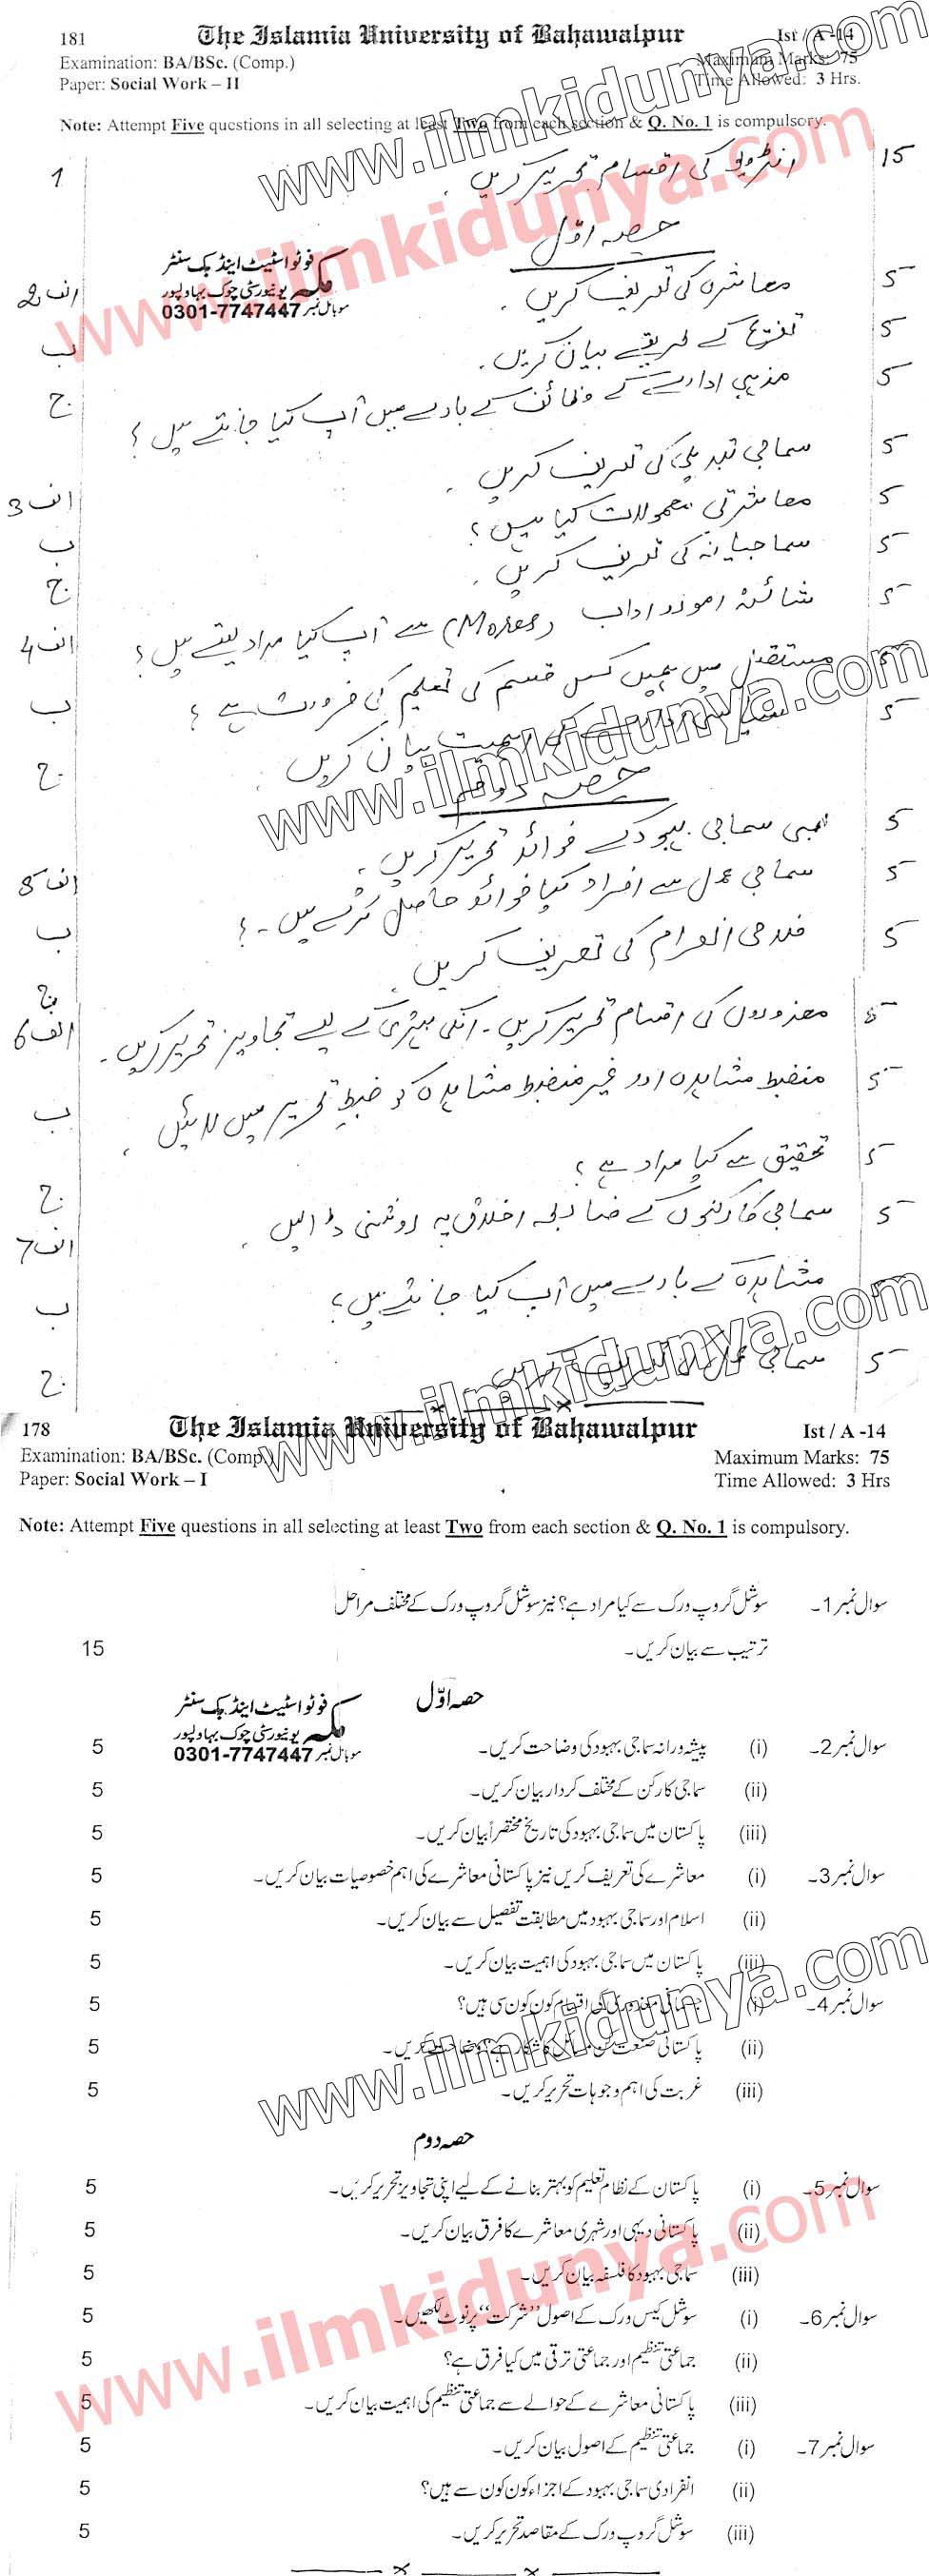 181
The Islamia University of Bahawalpur
Ist / A -14
Examination: BA/BSc. (Comp.)
Maximum Marks: 75
Paper: Social Work – II
Time Allowed: 3 Hrs.
Note: Attempt Five questions in all selecting at least Two from each section & Q. No. 1 is compulsory.
www.ilmkidunya.com
1 انٹرویو کی اقسام تحریر کریں۔ 15
حصہ اوّل
فوٹو اسٹیٹ اینڈ بک سنٹر
یونیورسٹی چوک بہاولپور
موبائل نمبر 0301-7747447
2 الف معاشرہ کی تعریف کریں۔ 5
ب کے طریقے بیان کریں۔ 5
ج مذہبی ادارے کے وظائف کے بارے میں آپ کیا جانتے ہیں؟ 5
3 الف سماجی تبدیلی کی تعریف کریں۔ 5
ب معاشرتی معمولات کیا ہیں؟ 5
ج کی تعریف کریں۔ 5
4 الف (Mores) سے آپ کیا مراد لیتے ہیں؟ 5
ب مستقبل میں ہمیں کس قسم کی تعلیم کی ضرورت ہے؟ 5
ج کی اہمیت بیان کریں۔ 5
www.ilmkidunya.com
حصہ دوم
5 الف طبی سماجی بہبود کے فوائد تحریر کریں۔ 5
ب سماجی عمل سے افراد کیا فوائد حاصل کرتے ہیں۔؟ 5
ج فلاحی انصرام کی تعریف کریں۔ 5
6 الف معذوروں کی اقسام تحریر کریں۔ انکی بہتری کے لیے تجاویز تحریر کریں۔ 5
ب منضبط مشاہدہ اور غیر منضبط مشاہدہ کو ضبطِ تحریر میں لائیں۔ 5
ج تحقیق سے کیا مراد ہے؟ 5
7 الف سماجی کارکنوں کے ضابطہ اخلاق پہ روشنی ڈالیں۔ 5
ب مشاہدہ کے بارے میں آپ کیا جانتے ہیں؟ 5
ج سماجی 5
www.ilmkidunya.com
178
The Islamia University of Bahawalpur
Ist / A -14
Examination: BA/BSc. (Comp.)
Maximum Marks: 75
Paper: Social Work – I
Time Allowed: 3 Hrs
Note: Attempt Five questions in all selecting at least Two from each section & Q. No. 1 is compulsory.
سوال نمبر 1۔ سوشل گروپ ورک سے کیا مراد ہے؟ نیز سوشل گروپ ورک کے مختلف مراحل
ترتیب سے بیان کریں۔ 15
حصہ اوّل
فوٹو اسٹیٹ اینڈ بک سنٹر
یونیورسٹی چوک بہاولپور
موبائل نمبر 0301-7747447
سوال نمبر 2۔ (i) پیشہ ورانہ سماجی بہبود کی وضاحت کریں۔ 5
(ii) سماجی کارکن کے مختلف کردار بیان کریں۔ 5
(iii) پاکستان میں سماجی بہبود کی تاریخ مختصراً بیان کریں۔ 5
سوال نمبر 3۔ (i) معاشرے کی تعریف کریں نیز پاکستانی معاشرے کی اہم خصوصیات بیان کریں۔ 5
(ii) اسلام اور سماجی بہبود میں مطابقت تفصیل سے بیان کریں۔ 5
(iii) پاکستان میں سماجی بہبود کی اہمیت بیان کریں۔ 5
سوال نمبر 4۔ (i) جسمانی معذوری کی اقسام کون کون سی ہیں؟ 5
(ii) پاکستانی صنعت کن مسائل کا شکار ہے؟ وضاحت کریں۔ 5
(iii) غربت کی اہم وجوہات تحریر کریں۔ 5
www.ilmkidunya.com
حصہ دوم
سوال نمبر 5۔ (i) پاکستان کے نظام تعلیم کو بہتر بنانے کے لیے اپنی تجاویز تحریر کریں۔ 5
(ii) پاکستانی دیہی اور شہری معاشرے کا فرق بیان کریں۔ 5
(iii) سماجی بہبود کا فلسفہ بیان کریں۔ 5
سوال نمبر 6۔ (i) سوشل کیس ورک کے اصول "شرکت" پر نوٹ لکھیں۔ 5
(ii) جماعتی تنظیم اور جماعتی ترقی میں کیا فرق ہے؟ 5
(iii) پاکستانی معاشرے کے حوالے سے جماعتی تنظیم کی اہمیت بیان کریں۔ 5
www.ilmkidunya.com
سوال نمبر 7۔ (i) جماعتی تنظیم کے اصول بیان کریں۔ 5
(ii) انفرادی سماجی بہبود کے اجزاء کون کون سے ہیں؟ 5
(iii) سوشل گروپ ورک کے مقاصد تحریر کریں۔ 5